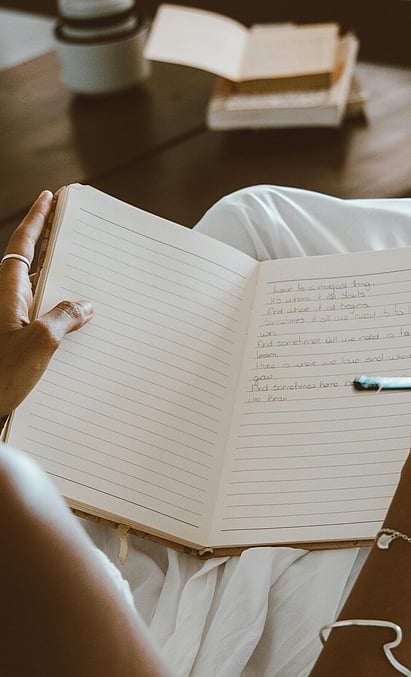 Love is a magical thing
It's where it all starts
And where it all begins
Sometimes it all we need to
win
And sometimes all we need is to
learn
Home is where we love and where
grow
And sometimes home
we know